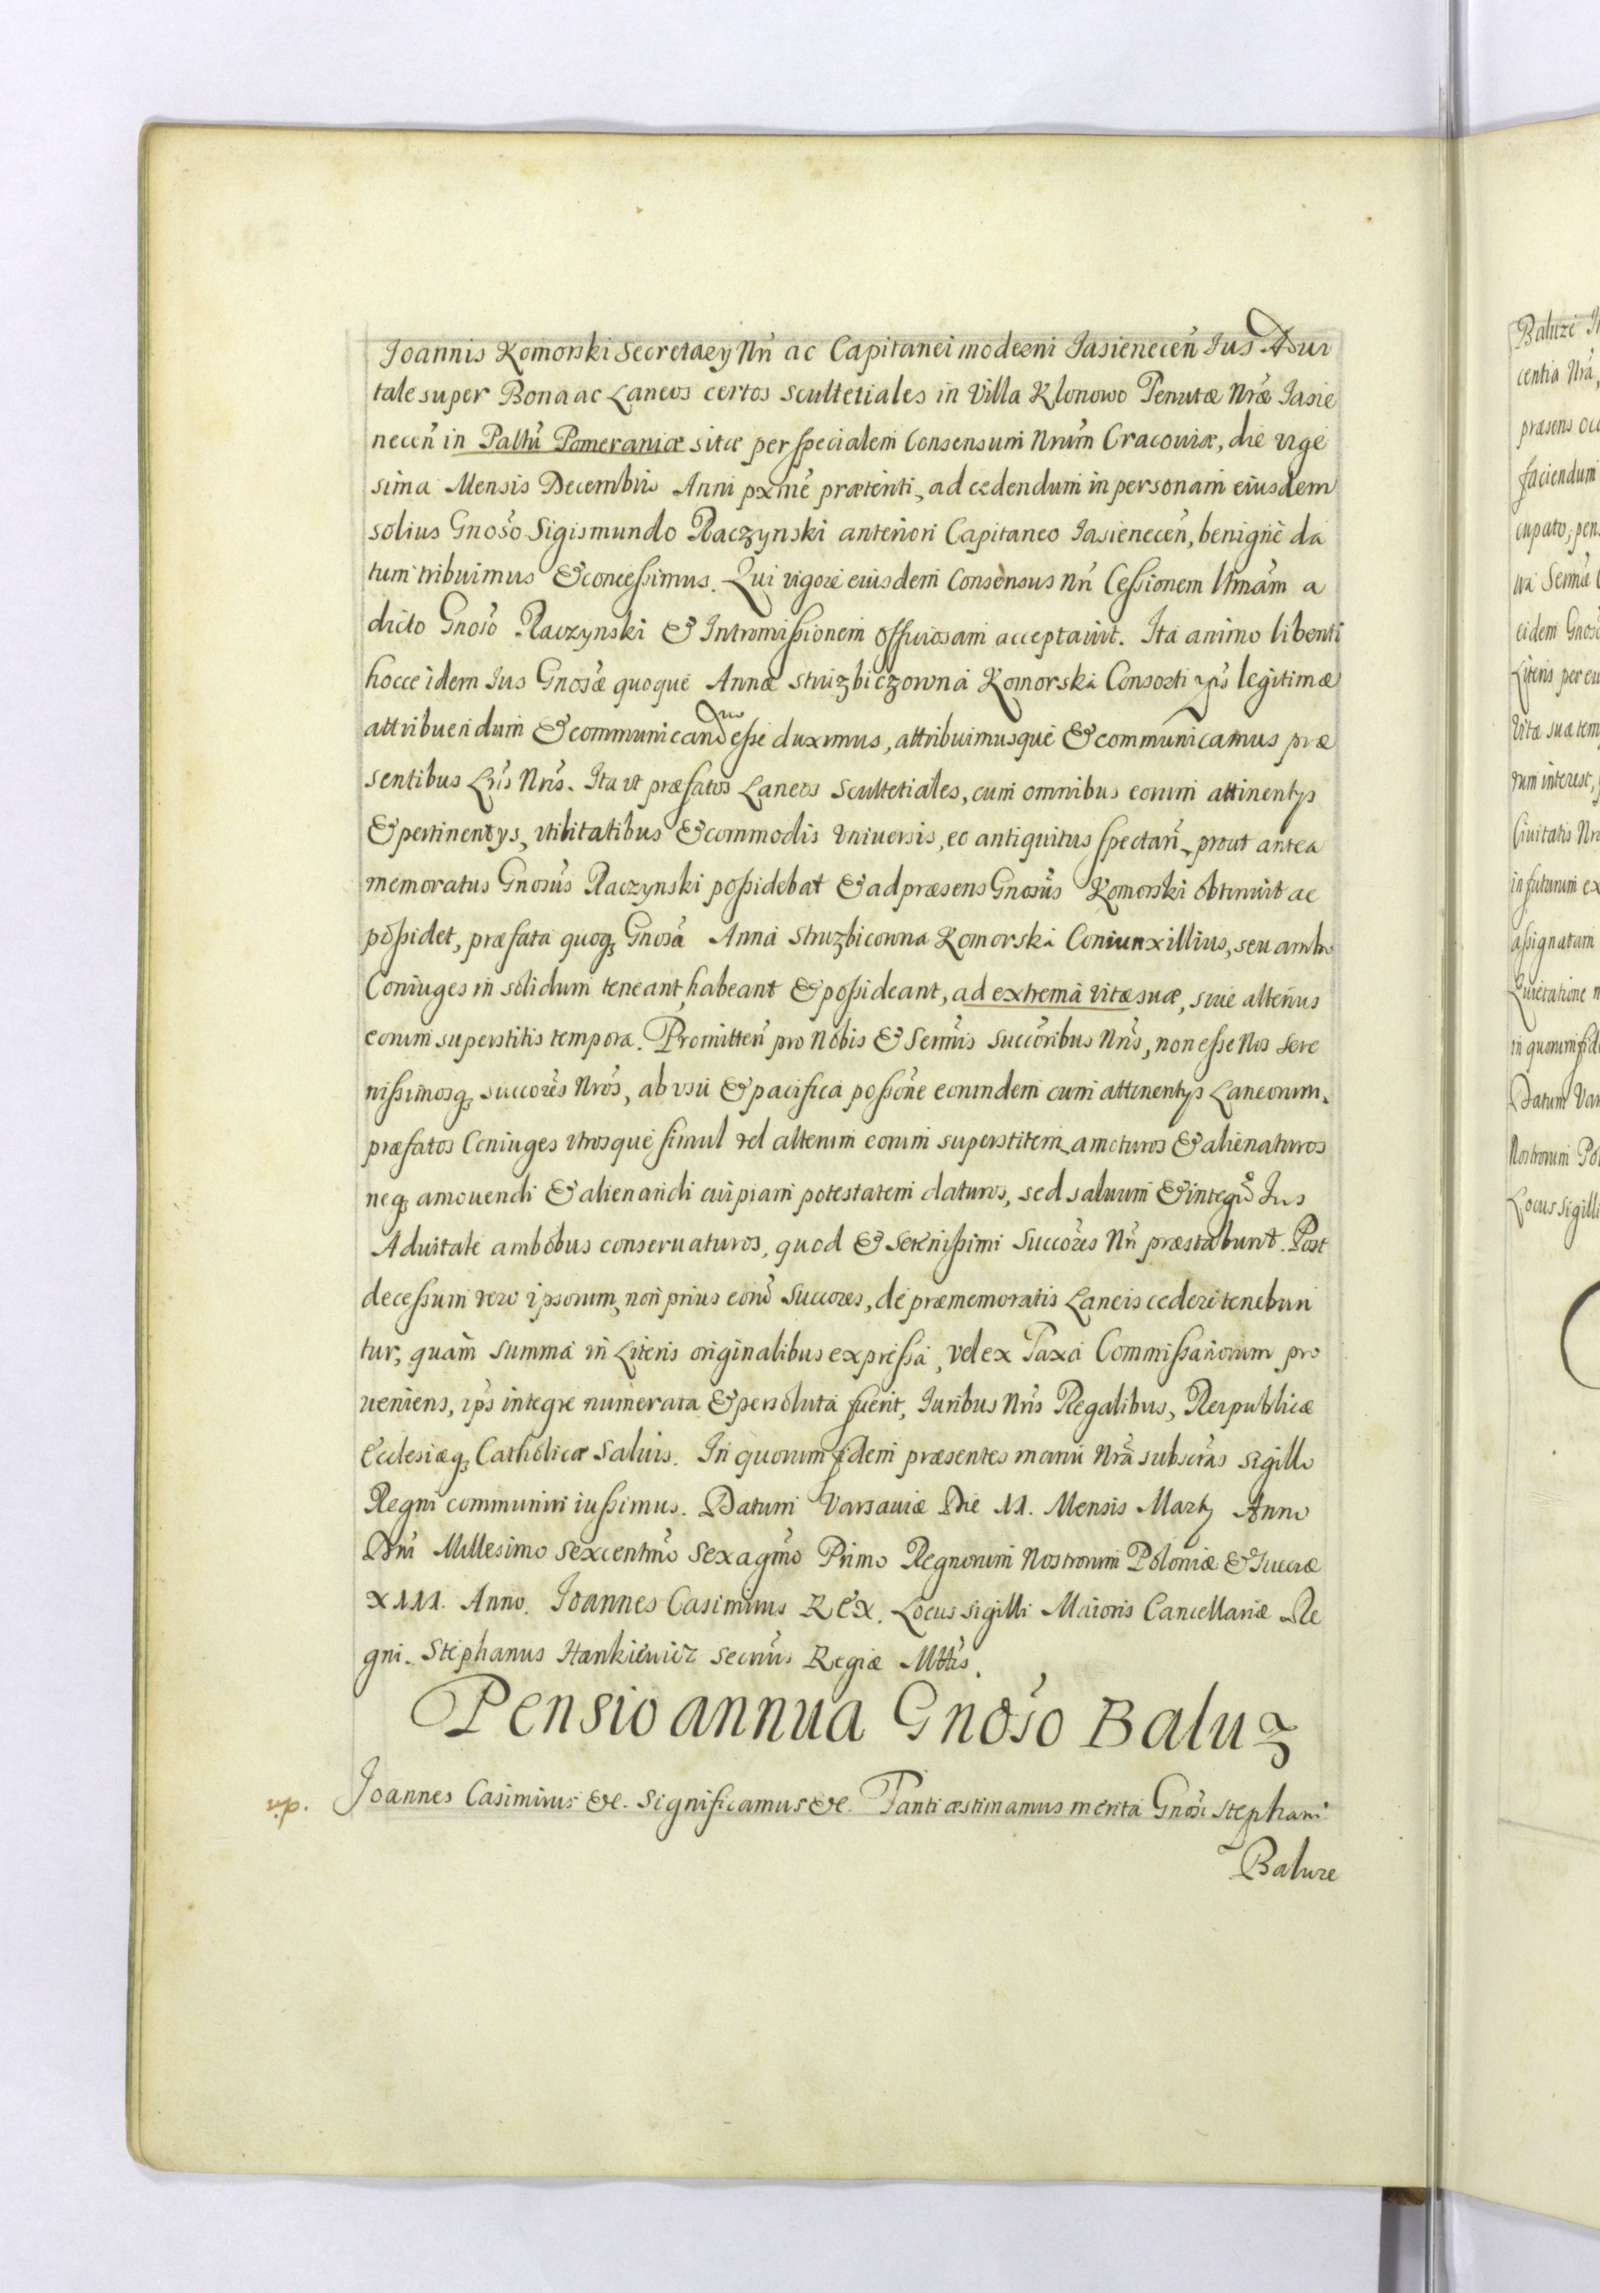 Joannis Komorski Secretarÿ Nr̃i ac Capitanei moderni Jasienecen̄ Jus Advi
tale super Bona ac Laneos certos scultetiales in Villa Klonowo Tenutæ Nr̃æ Jasie
necen̄ in Paltũ Pomeraniæ sitæ per specialem Consensum Nrũm Cracouiæ, die vige
sima Mensis Decembris Anni pxmẽ præteriti, ad cedendum in personam eiusdem
solius Gnoso Sigismundo Raczynski anteriori Capitaneo Jasienecen̄, benignè da
tum tribuimus & concessimus. Qui vigore eiusdem Consensus Nr̃i Cessionem ltmãm a
dicto Gnoso Raczynski & Intromissionem officiosam acceptauit. Ita animo libenti
hocce idem Jus Gnosæ quoque Annæ Struzbiczowna Komorska Consorti ip̃s legitimæ
attribuendum & communicandũ esse duximus, attribuimusque & communicamus præ
sentibus Lr̃is Nr̃is. Ita vt præfatos Laneos Scultetiales, cum omnibus eorum attinentÿs
& pertinentÿs, vtilitatibus & commodis vniuersis, eo antiquitus spectan̄, prout antea
memoratus Gnosus Raczynski possidebat & ad præsens Gnosus Komorski obtinuit ac
possidet, præfata quoq; Gnosa Anna Struzbicowna Komorska Coniunx illius, seu ambo
Coniuges in solidum teneant, habeant & possideant, ad extrema vitæ suæ, siue alterius
eorum superstitis tempora. Promitten̄ pro Nobis & Sermis Succoribus Nr̃is, non esse Nos Sere
nissimosq; succores Nros, ab vsu & pacifica possõne eorundem cum attinentÿs Laneorum,
præfatos Coniuges vtrosque simul vel alterum eorum superstitem, amoturos & alienaturos
neq; amouendi & alienandi cuipiam potestatem daturos, sed saluum & integrũ Jus
Aduitale ambobus conseruaturos, quod & Serenissimi Succores Nr̃i præstabunt. Post
decessum vero ipsorum, non prius eorũ Succores, de præmemoratis Laneis cedere tenebun
tur, quam summa in Literis originalibus expressa, vel ex Taxa Commissariorum pro
ueniens, ip̃s integre numerata & persoluta fuerit, Juribus Nr̃is Regalibus, Reipublicæ
Ecclesiæq; Catholicæ Saluis. In quorum fidem præsentes manu Nr̃a subscr̃as Sigillo
Regni communiri iussimus. Datum Varsauiæ Die 11. Mensis Martÿ Anno
Dni Millesimo Sexcentmo Sexagmo Primo Regnorum Nostrorum Poloniæ & Sueciæ
XIII. Anno. Joannes Casimirus REX. Locus sigilli Maioris Cancellariæ Re
gni. Stephanus Hankiewicz Secrius Regiæ Mttis.
Pensio annua Gnoso Baluz
v.p. Joannes Casimirus &c. Significamus &c. Tanti æstimamus merita Gnosi Stephani
Baluze
Baluze
centia Nr̃a,
præsens
faciendum
cupato,
eidem Gnoso
Literis per
vitæ suæ tem
rum interest,
Ciuitatis
in futurum ex
assignatum
in quorum fid
Datum Var
Nostrorum Po
Locus sigilli